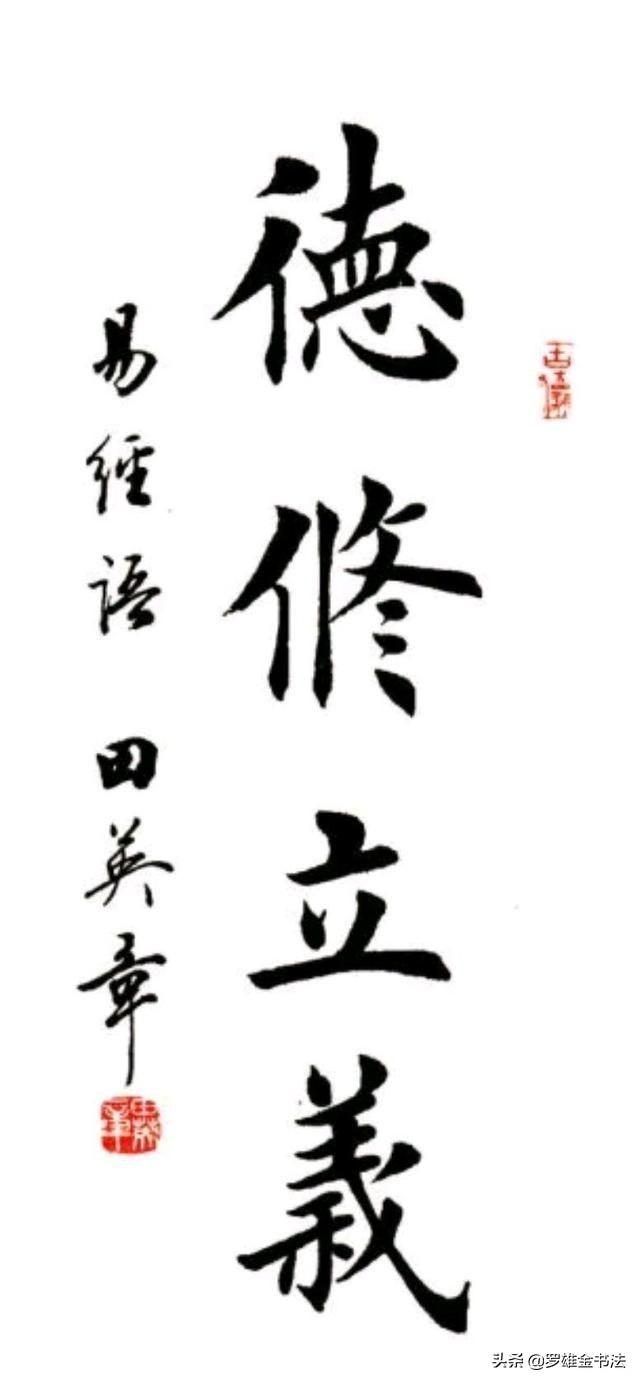 德修立義
易經語 田英章
头条 @罗雄金书法